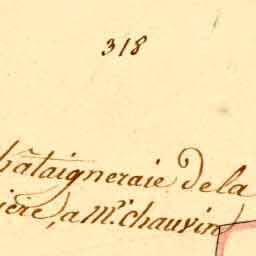 318
hâtaigneraie de la
ière, a Mr. chauvin